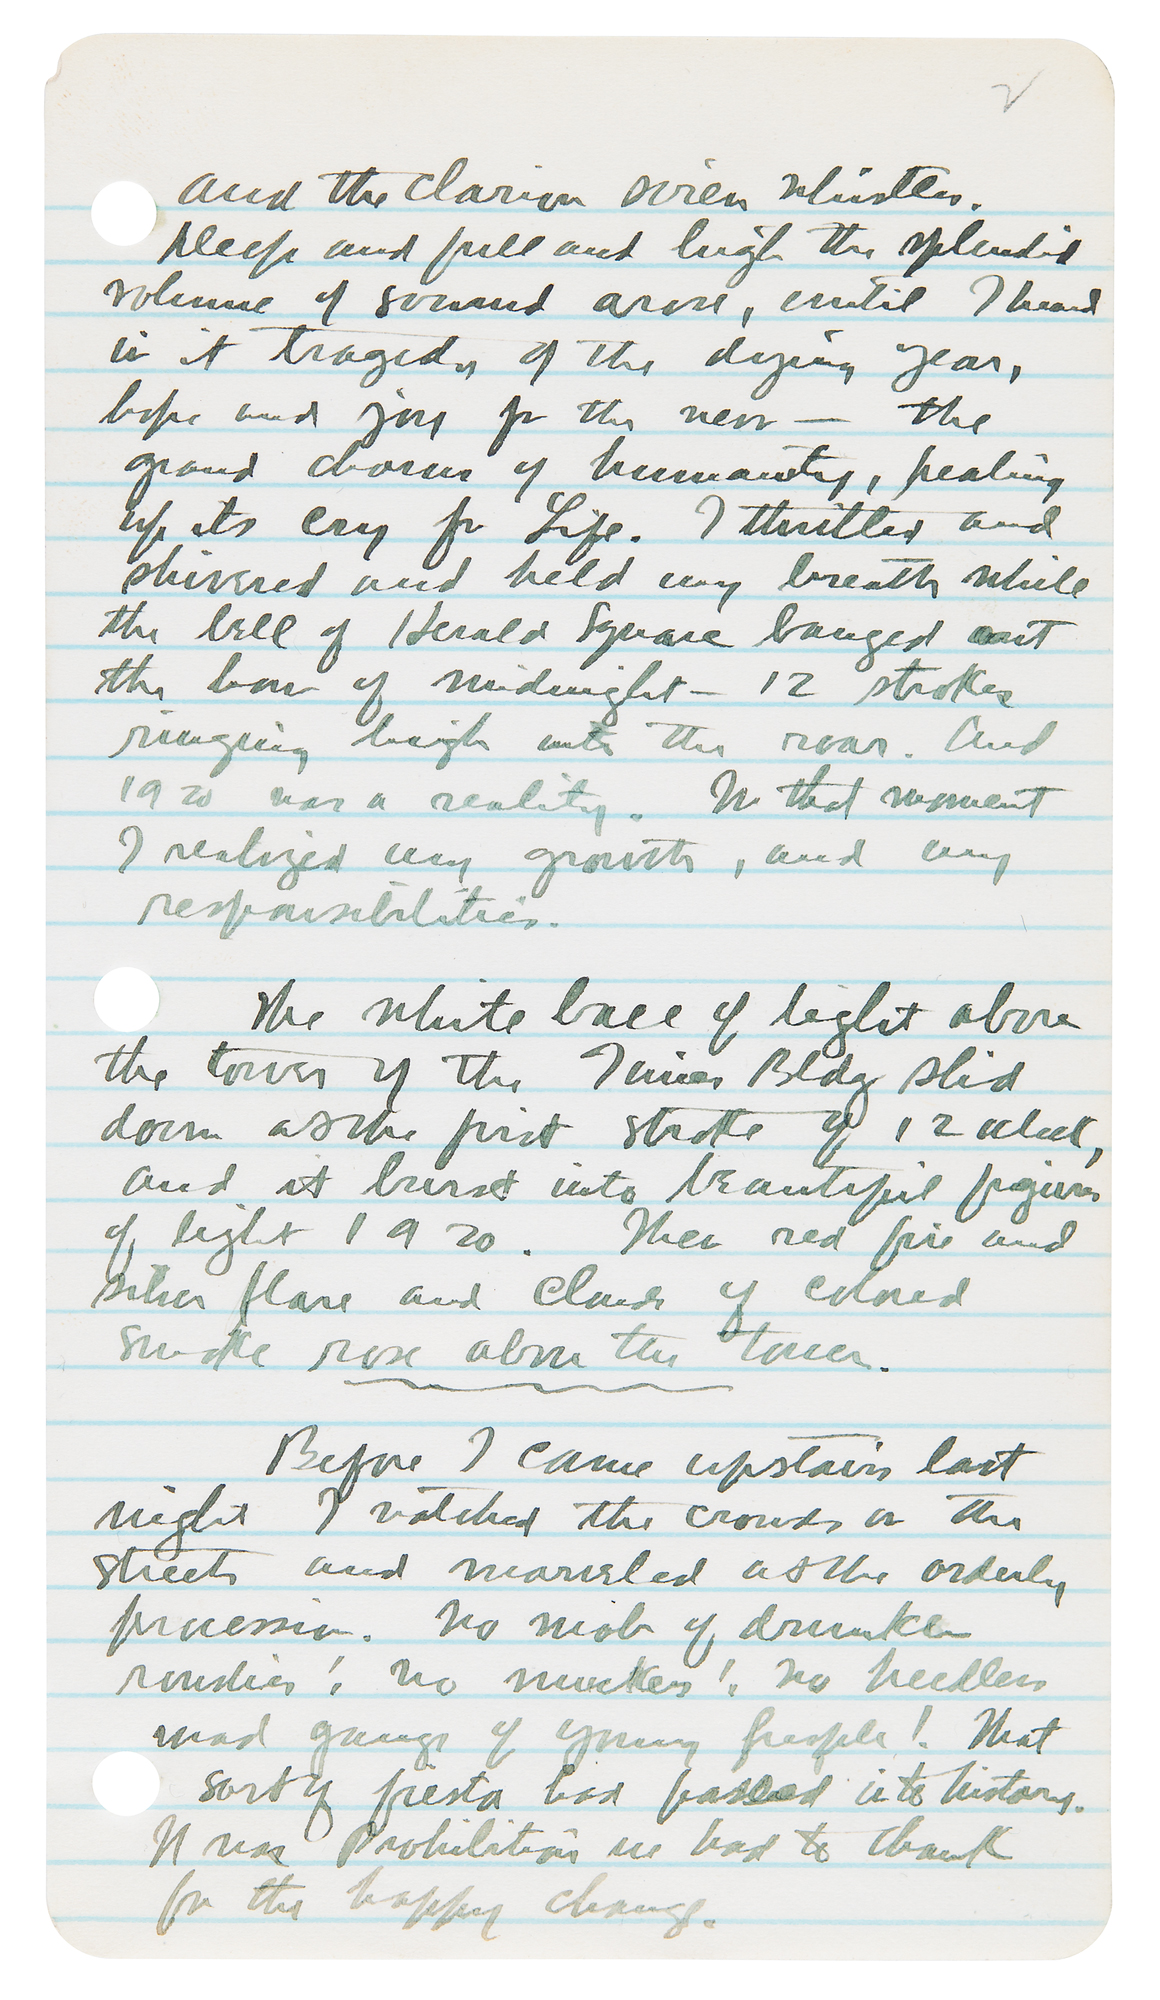 2
and the clarion siren whistles.
Deep and full and high the splendid
volume of sound arose, until I heard
in it tragedy of the dying year,
hope and joy for the new — the
grand chorus of humanity, pealing
up its cry for Life. I thrilled and
shivered and held my breath while
the bell of Herald Square banged out
the hour of midnight — 12 strokes
ringing high into the roar. And
1920 was a reality. In that moment
I realized my growth, and my
responsibilities.
The white ball of light above
the tower of the Times Bldg slid
down as the first stroke of 12 
and it burst into beautiful figures
of light 1920. Then red fire and
silver flare and clouds of colored
smoke rose above the tower.
Before I came upstairs last
night I watched the crowds on the
streets and marveled as the orderly
procession. No mob of drunken
rowdies! no muckers! no heedless
mad gangs of young people! That
sort of fiesta had passed into history.
It was Prohibition we had to thank
for the happy change.